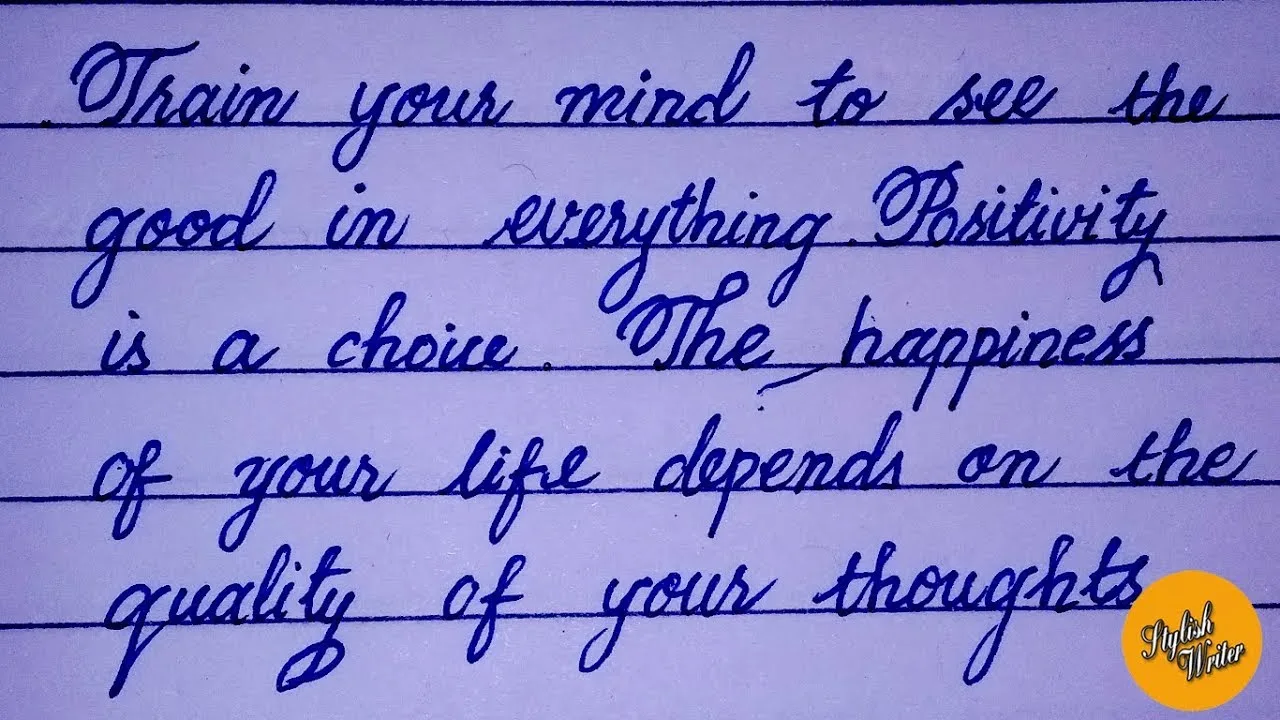 Train your mind to see the
good in everything. Positivity
is a choice. The happiness
of your life depends on the
quality of your thoughts
Stylish
Writer